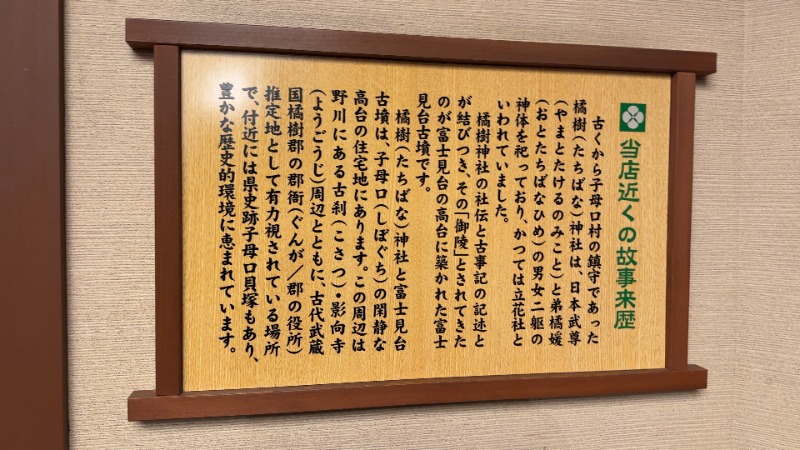 当店近くの故事来歴
古くから子母口村の鎮守であった
橘樹(たちばな)神社は、日本武尊
(やまとたけるのみこと)と弟橘媛
(おとたちばなひめ)の男女二躯の
神体を祀っており、かつては立花社と
いわれていました。
橘樹神社の社伝と古事記の記述と
が結びつき、その「御陵」とされてきた
のが富士見台の高台に築かれた富士
見台古墳です。
橘樹(たちばな)神社と富士見台
古墳は、子母口(しぼぐち)の閑静な
高台の住宅地にあります。この周辺は
野川にある古刹(こさつ)・影向寺
(ようごうじ)周辺とともに、古代武蔵
国橘樹郡の郡衙(ぐんが/郡の役所)
推定地として有力視されている場所
で、付近には県史跡子母口貝塚もあり、
豊かな歴史的環境に恵まれています。